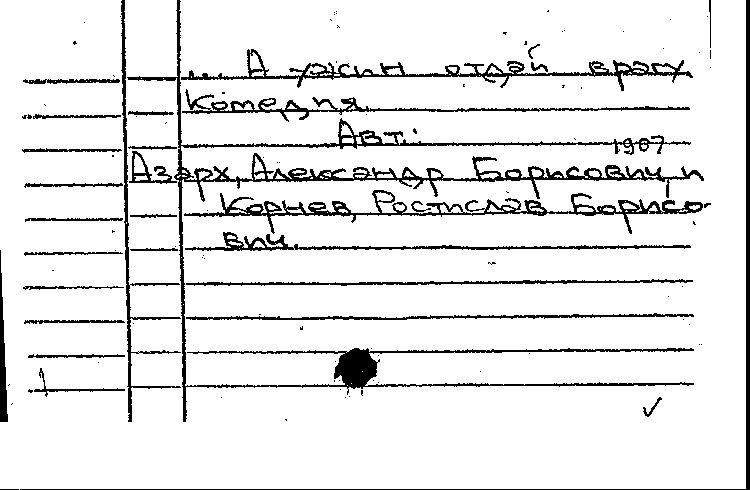 ... А ужин отдай врагу.
Комедия.
Авт.:
1907
Азарх, Александр Борисович, и
Корнев, Ростислав Борисо-
вич.